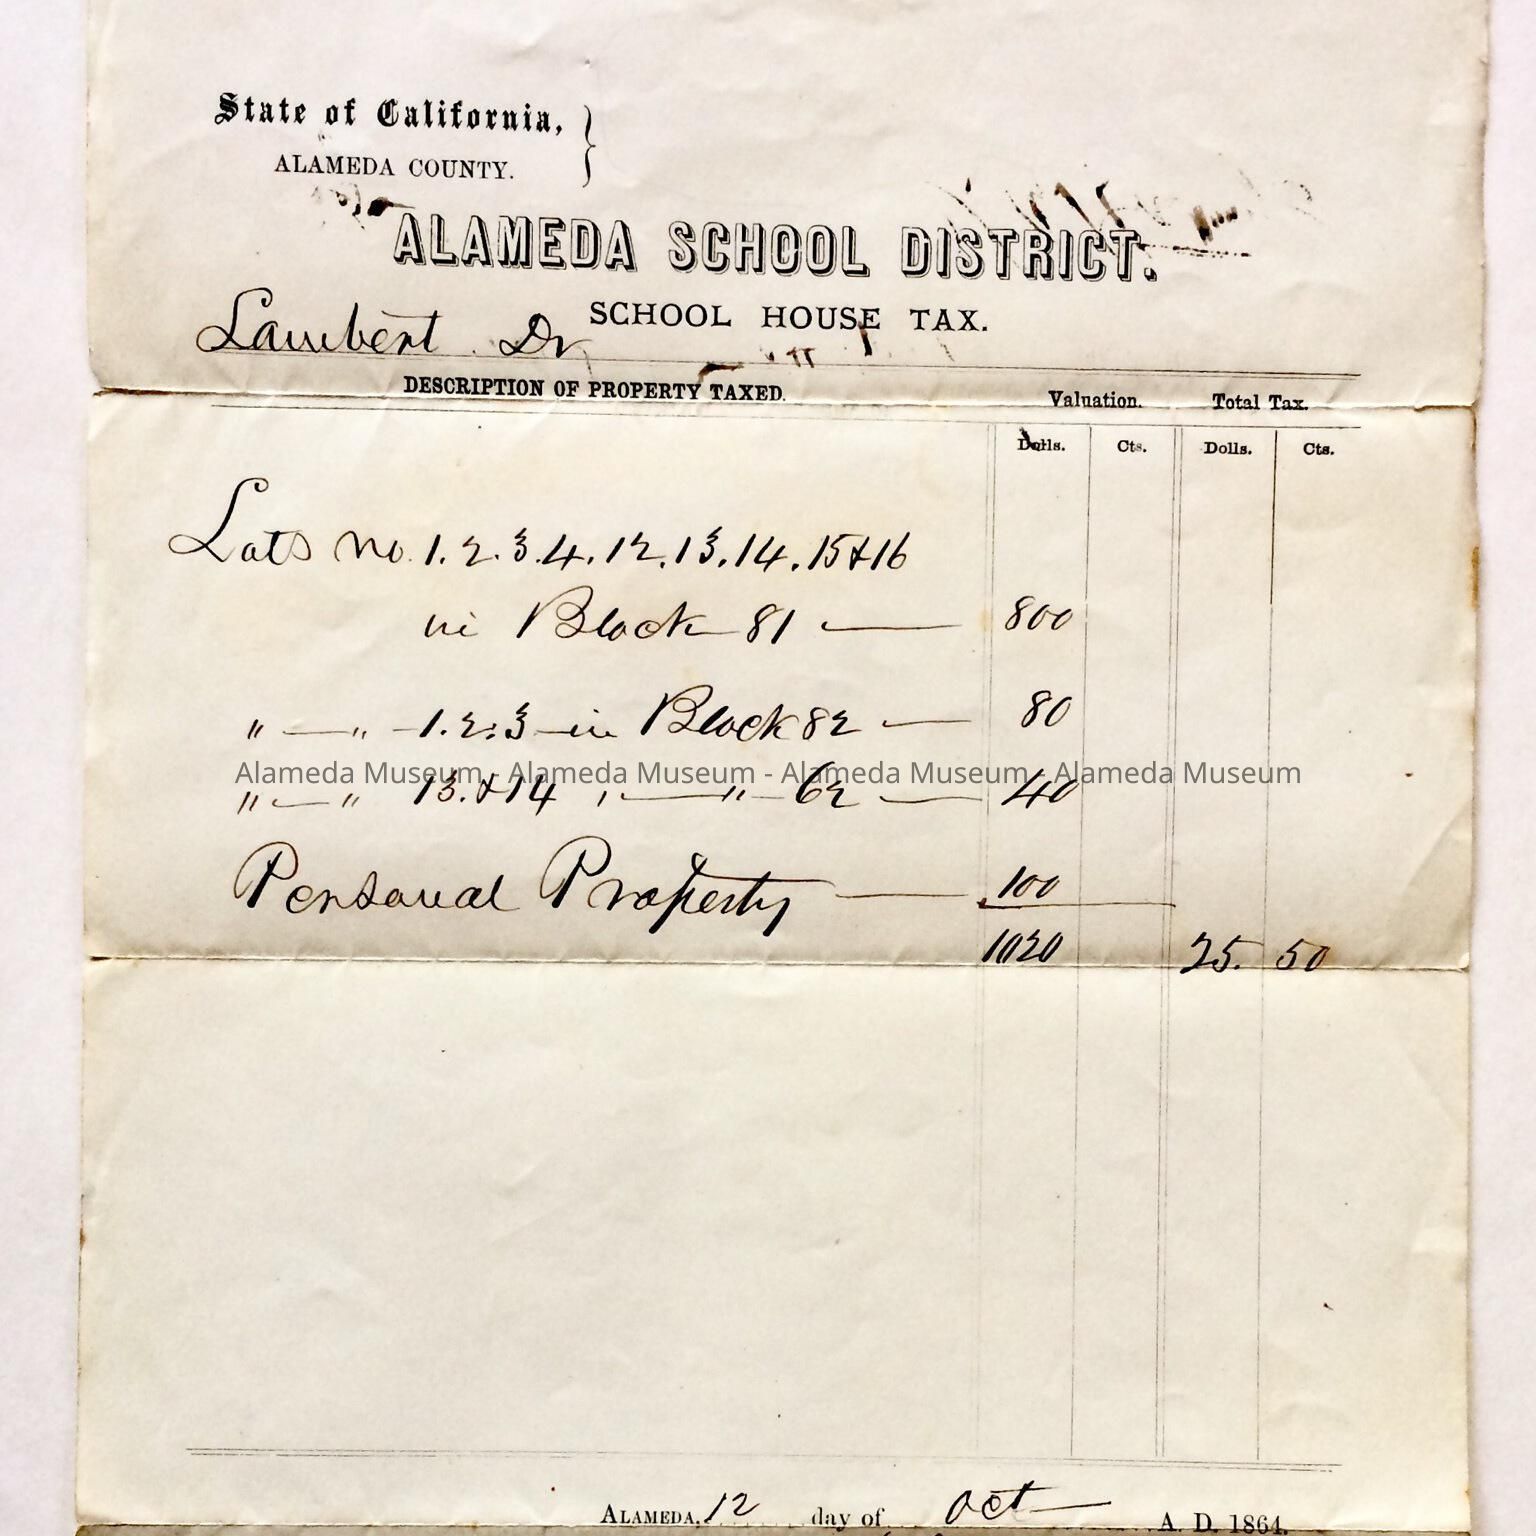 State of California,
ALAMEDA COUNTY.
ALAMEDA SCHOOL DISTRICT.
SCHOOL HOUSE TAX.
Lambert Dr
DESCRIPTION OF PROPERTY TAXED. Valuation. Total Tax.
Dolls. Cts. Dolls. Cts.
Lots No. 1. 2. 3. 4. 12. 13. 14. 15 & 16
in Block 81 — 800
" — " — 1. 2. 3 — in Block 82 — 80
Alameda Museum - Alameda Museum - Alameda Museum - Alameda Museum
" — " 13. & 14 " — " — 62 — 40
Personal Property — 100
1020 25. 50
ALAMEDA, 12 day of Oct A. D. 1864.